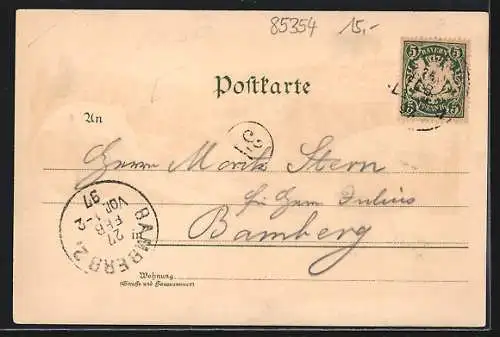 85354 15,-
5 BAYERN 5
5 PFENNIG 5
Postkarte
An
31
Herrn Moritz Stern
Bamberg
BAMBERG 2.
27
FEB
VOR. 1-2
97
Wohnung
(Straße und Hausnummer)